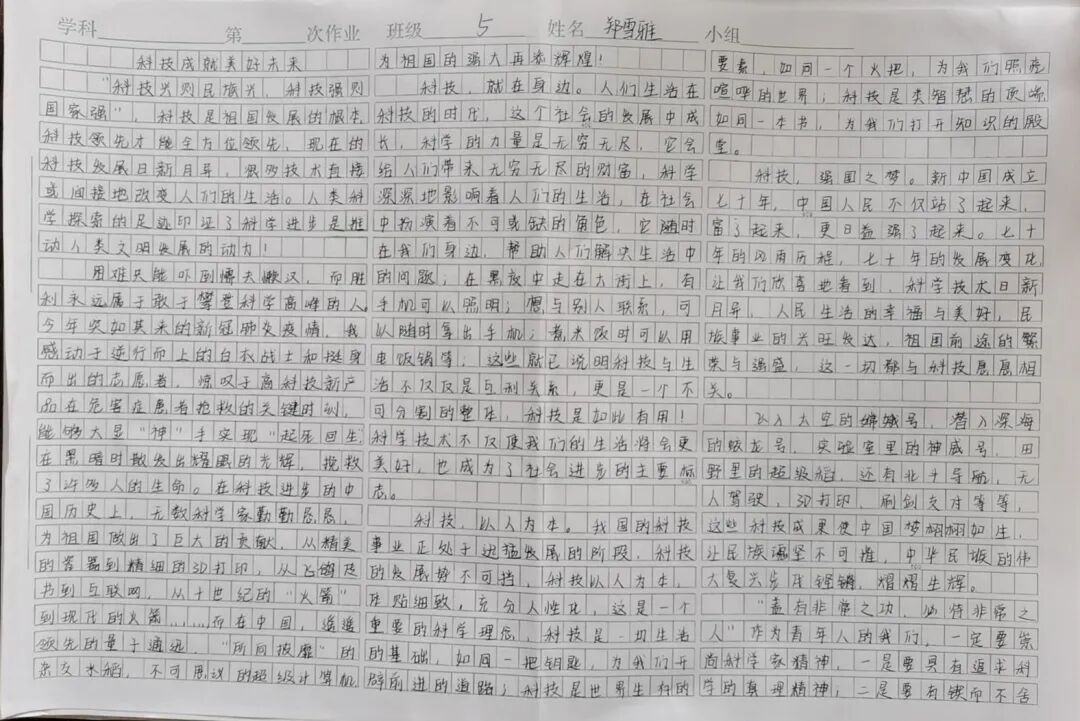 学科 第 次作业 班级 5 姓名 郑雪雅 小组
科技成就美好未来
“科技兴则民族兴，科技强则
国家强”，科技是祖国发展的根本
科技领先才能全方位领先，现在的
科技发展日新月异，很多技术直接
或间接地改变人们的生活。人类科
学探索的足迹印证了科学进步是推
动人类文明发展的动力！
困难只能吓到懦夫懒汉，而胜
利永远属于敢于攀登科学高峰的人。
今年突如其来的新冠肺炎疫情，我
感动于逆行而上的白衣战士和挺身
而出的志愿者，惊叹于高科技新产
品在危害症患者抢救的关键时刻，
能够大显“神”手实现“起死回生
在黑暗时散发出耀眼的光辉，挽救
了许多人的生命。在科技进步的中
国历史上，无数科学家勤勤恳恳，
为祖国做出了巨大的贡献，从精美
的瓷器到精细的3D打印，从飞鸽传
书到互联网，从十世纪的“火箭”
到现代的火箭……而在中国，遥遥
领先的量子通迅，“所向披靡”的
杂交水稻，不可思议的超级计算机
为祖国的强大再添辉煌！
科技，就在身边。人们生活在
科技的时代，这个社会的发展中成
长，科学的力量是无穷无尽，它会
给人们带来无穷无尽的财富，科学
深深地影响着人们的生活，在社会
中扮演着不可或缺的角色，它随时
在我们身边，帮助人们解决生活中
的问题；在黑夜中走在大街上，有
手机可以照明；想与别人联系，可
以随时拿出手机；煮米饭时可以用
电饭锅等；这些就已说明科技与生
活不仅仅是互利关系，更是一个不
可分割的整体，科技是如此有用！
科学技术不仅使我们的生活将会更
美好，也成为了社会进步的主要标
志。
科技，以人为本。我国的科技
事业正处于迅猛发展的阶段，科技
的发展势不可挡，科技以人为本，
体贴细致，充分人性化，这是一个
重要的科学理念，科技是一切生活
的基础，如同一把钥匙，为我们开
辟前进的道路；科技是世界生存的
要素，如同一个火把，为我们照亮
喧哗的世界；科技是类智慧的顶端
如同一本书，为我们打开知识的殿
堂。
科技，强国之梦。新中国成立
七十年，中国人民不仅站了起来，
富了起来，更日益强了起来。七十
年的风雨历程，七十年的发展变化
让我们欣喜地看到，科学技术日新
月异，人民生活的幸福与美好，民
族事业的兴旺发达，祖国前途的繁
荣与强盛，这一切都与科技息息相
关。
飞入太空的嫦娥号，潜入深海
的蛟龙号，实验室里的神威号，田
野里的超级稻，还有北斗导航，无
人驾驶，3D打印，刷剑支付等等，
这些科技成果使中国梦栩栩如生，
让民族魂坚不可摧，中华民族的伟
大复兴步伐铿锵，熠熠生辉。
“盖有非常之功，必待非常之
人”作为青年人的我们，一定要崇
尚科学家精神，一是要具有追求科
学的真理精神；二是要有锲而不舍